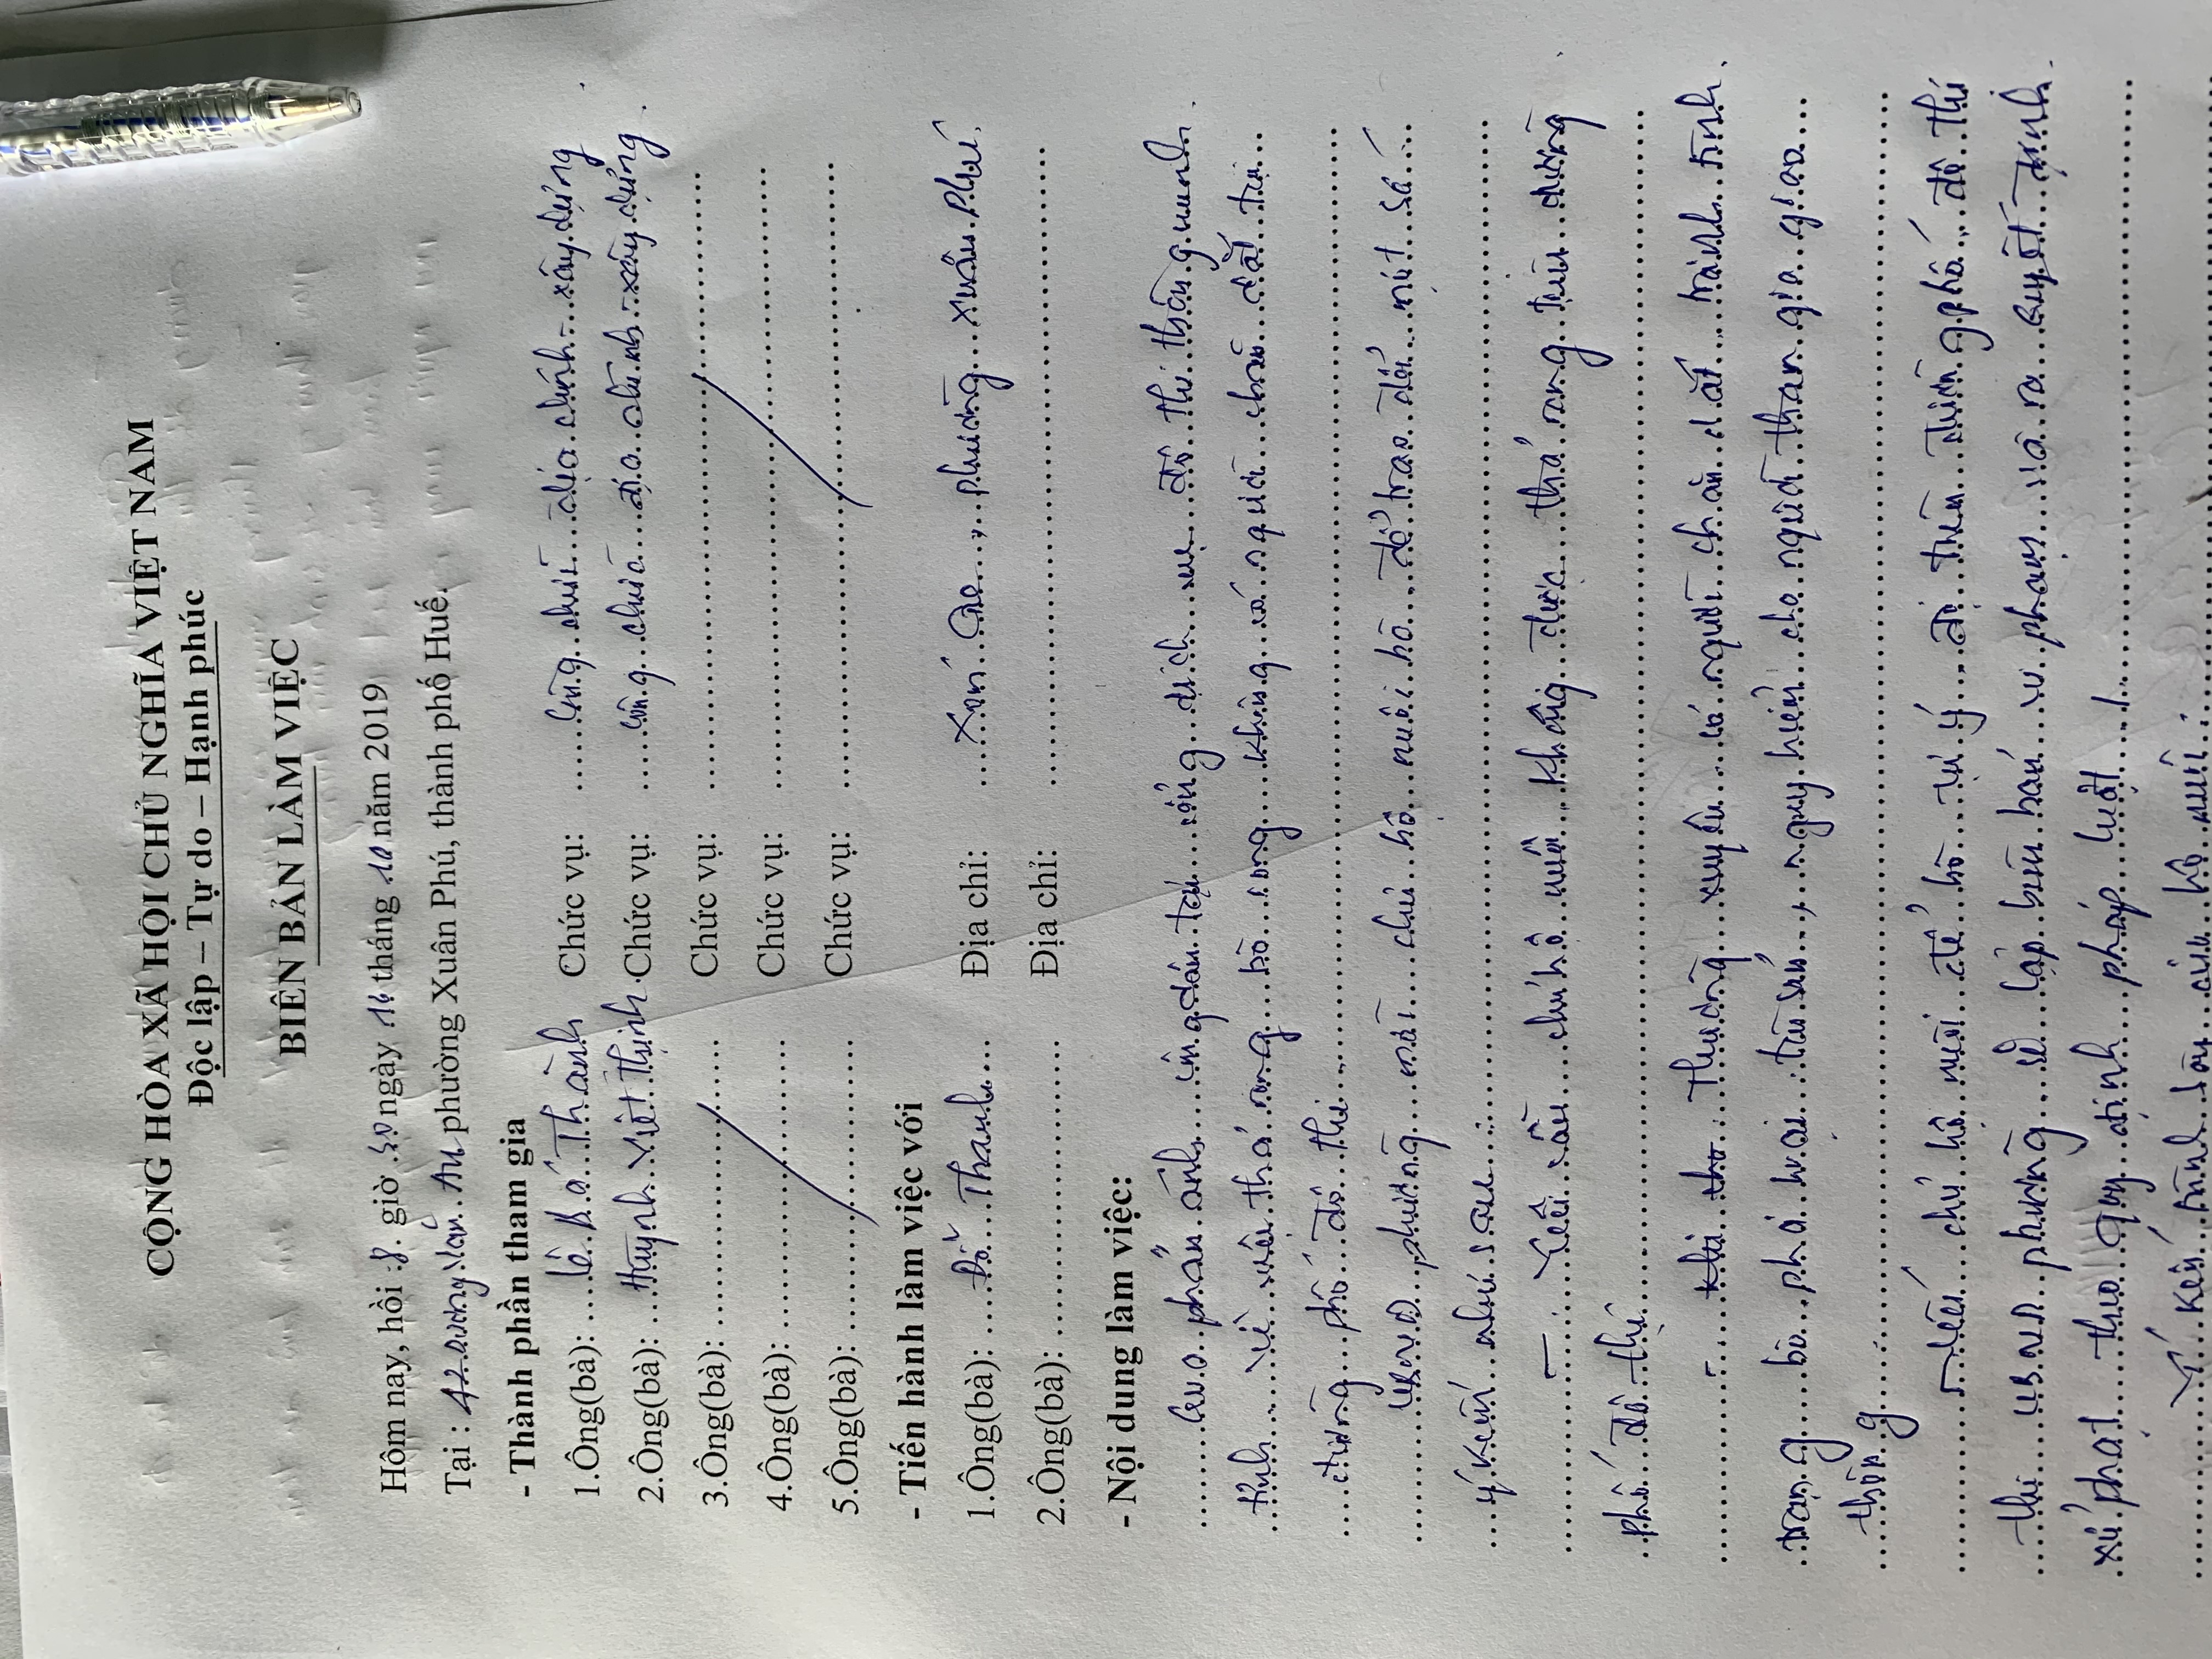 CỘNG HÒA XÃ HỘI CHỦ NGHĨA VIỆT NAM
Độc lập – Tự do – Hạnh phúc
BIÊN BẢN LÀM VIỆC
Hôm nay, hồi 8 giờ 30 ngày 16 tháng 10 năm 2019
Tại : 42 Dương Văn An phường Xuân Phú, thành phố Huế.
- Thành phần tham gia
1.Ông(bà): Lê Bá Thành Chức vụ: Công chức địa chính - xây dựng
2.Ông(bà): Huỳnh Viết Thịnh Chức vụ: công chức địa chính - xây dựng
3.Ông(bà): Chức vụ:
4.Ông(bà): Chức vụ:
5.Ông(bà): Chức vụ:
- Tiến hành làm việc với
1.Ông(bà): Đỗ Thanh Địa chỉ: Xóm Gióc, phường Xuân Phú
2.Ông(bà): Địa chỉ:
- Nội dung làm việc:
phản ánh dân tại cổng dịch vụ đô thị thông minh
tỉnh về việc thả rong bò rong không có người chăn dắt tại
đường phố đô thị
UBND phường mời chủ hộ nuôi bò để trao đổi một số
ý kiến như sau:
- Yêu cầu chủ hộ nuôi không được thả rong trên đường
phố đô thị
- thường xuyên có người chăn dắt tránh tình
trạng bò phá hoại tài sản, nguy hiểm cho người tham gia giao
thông
Nếu chủ hộ nuôi để bò tự ý đi trên đường phố đô thị
thì UBND phường sẽ lập biên bản vi phạm và ra quyết định
xử phạt theo quy định pháp luật./.
Ý kiến của hộ nuôi: